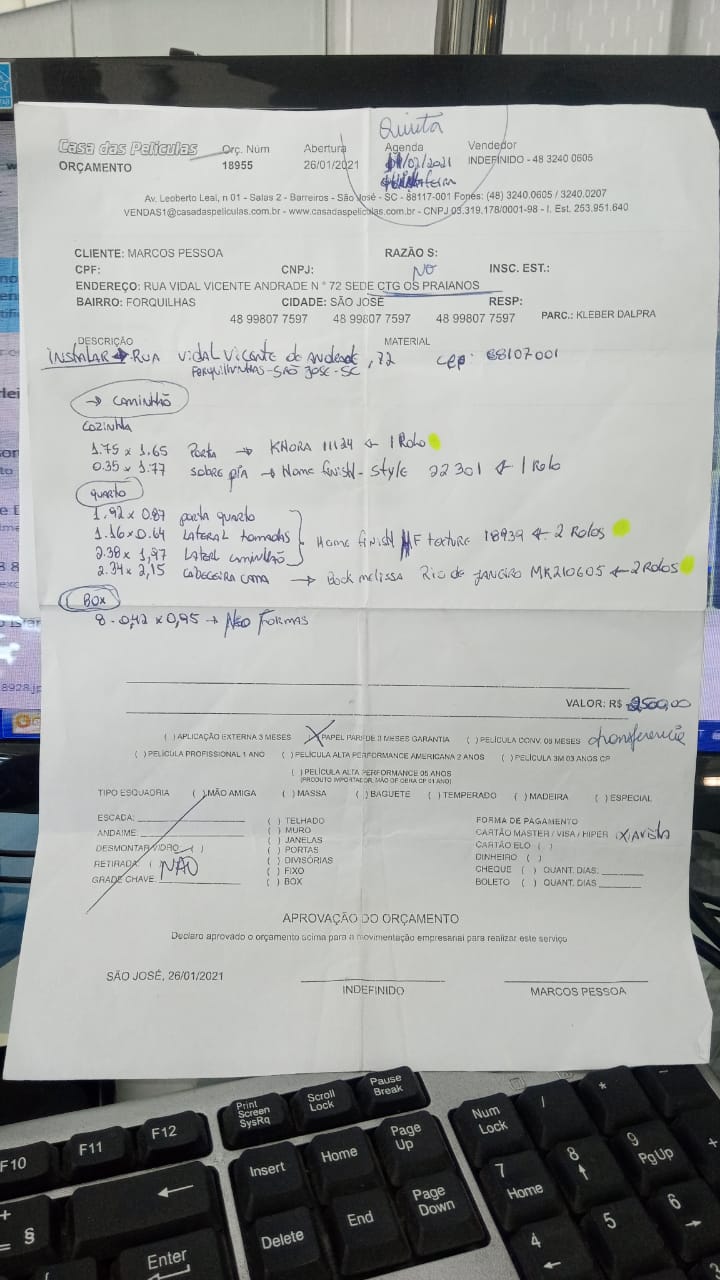 Quinta
Casa das Películas Orç. Núm Abertura Agenda Vendedor
ORÇAMENTO 18955 26/01/2021 /02/2021 INDEFINIDO - 48 3240 0605
Av. Leoberto Leal, n 01 - Salas 2 - Barreiros - São José - SC - 88117-001 Fones: (48) 3240.0605 / 3240.0207
VENDAS1@casadaspeliculas.com.br - www.casadaspeliculas.com.br - CNPJ 03.319.178/0001-98 - I. Est. 253.951.640
CLIENTE: MARCOS PESSOA RAZÃO S:
CPF: CNPJ: NO INSC. EST.:
ENDEREÇO: RUA VIDAL VICENTE ANDRADE N ° 72 SEDE CTG OS PRAIANOS
BAIRRO: FORQUILHAS CIDADE: SÃO JOSÉ RESP:
48 99807 7597 48 99807 7597 48 99807 7597 PARC.: KLEBER DALPRA
DESCRIÇÃO MATERIAL
INSTALAR → RUA Vidal Vicente de Andrade, 72 cep: 88107001
Forquilhinhas - SÃO JOSE - SC
→ CAMINHÃO
COZINHA
1.75 x 1.65 Porta → KHORA 11134 ← 1 Rolo
0.35 x 1.77 sobre pia → Home finish - Style 22301 ← 1 Rolo
quarto
1.92 x 0.87 porta quarto
1.16 x 0.64 LATERAL tomadas Home finish HF texture 18939 ← 2 Rolos
2.38 x 1,97 Lateral caminhão
2.34 x 2,15 CABECEIRA CAMA → Bock melissa Rio de JANEIRO MK210605 ← 2 Rolos
BOX
8 - 0,42 x 0,95 → Neo FORMAS
VALOR: R$ 2500,00
( ) APLICAÇÃO EXTERNA 3 MESES (X) PAPEL PAREDE 3 MESES GARANTIA ( ) PELÍCULA CONV. 06 MESES transferencia
( ) PELÍCULA PROFISSIONAL 1 ANO ( ) PELÍCULA ALTA PERFORMANCE AMERICANA 2 ANOS ( ) PELÍCULA 3M 03 ANOS CP
( ) PELÍCULA ALTA PERFORMANCE 05 ANOS
(PRODUTO IMPORTADOR, MÃO DE OBRA CP 01 ANO)
TIPO ESQUADRIA ( ) MÃO AMIGA ( ) MASSA ( ) BAGUETE ( ) TEMPERADO ( ) MADEIRA ( ) ESPECIAL
ESCADA: ( ) TELHADO FORMA DE PAGAMENTO
ANDAIME: ( ) MURO CARTÃO MASTER / VISA / HIPER (X) Avista
( ) JANELAS CARTÃO ELO ( )
DESMONTAR VIDRO ( ) ( ) PORTAS DINHEIRO ( )
RETIRADA: ( NÃO ( ) DIVISÓRIAS CHEQUE ( ) QUANT. DIAS:
GRADE CHAVE: ( ) FIXO BOLETO ( ) QUANT. DIAS
( ) BOX
APROVAÇÃO DO ORÇAMENTO
Declaro aprovado o orçamento acima para a movimentação empresarial para realizar este serviço
SÃO JOSÉ, 26/01/2021
INDEFINIDO MARCOS PESSOA
Print Screen SysRq Scroll Lock Pause Break
F10 F11 F12 Insert Home Page Up Num Lock / * -
Delete End Page Down 7 Home 8 9 PgUp +
§ = Enter 4 5 6